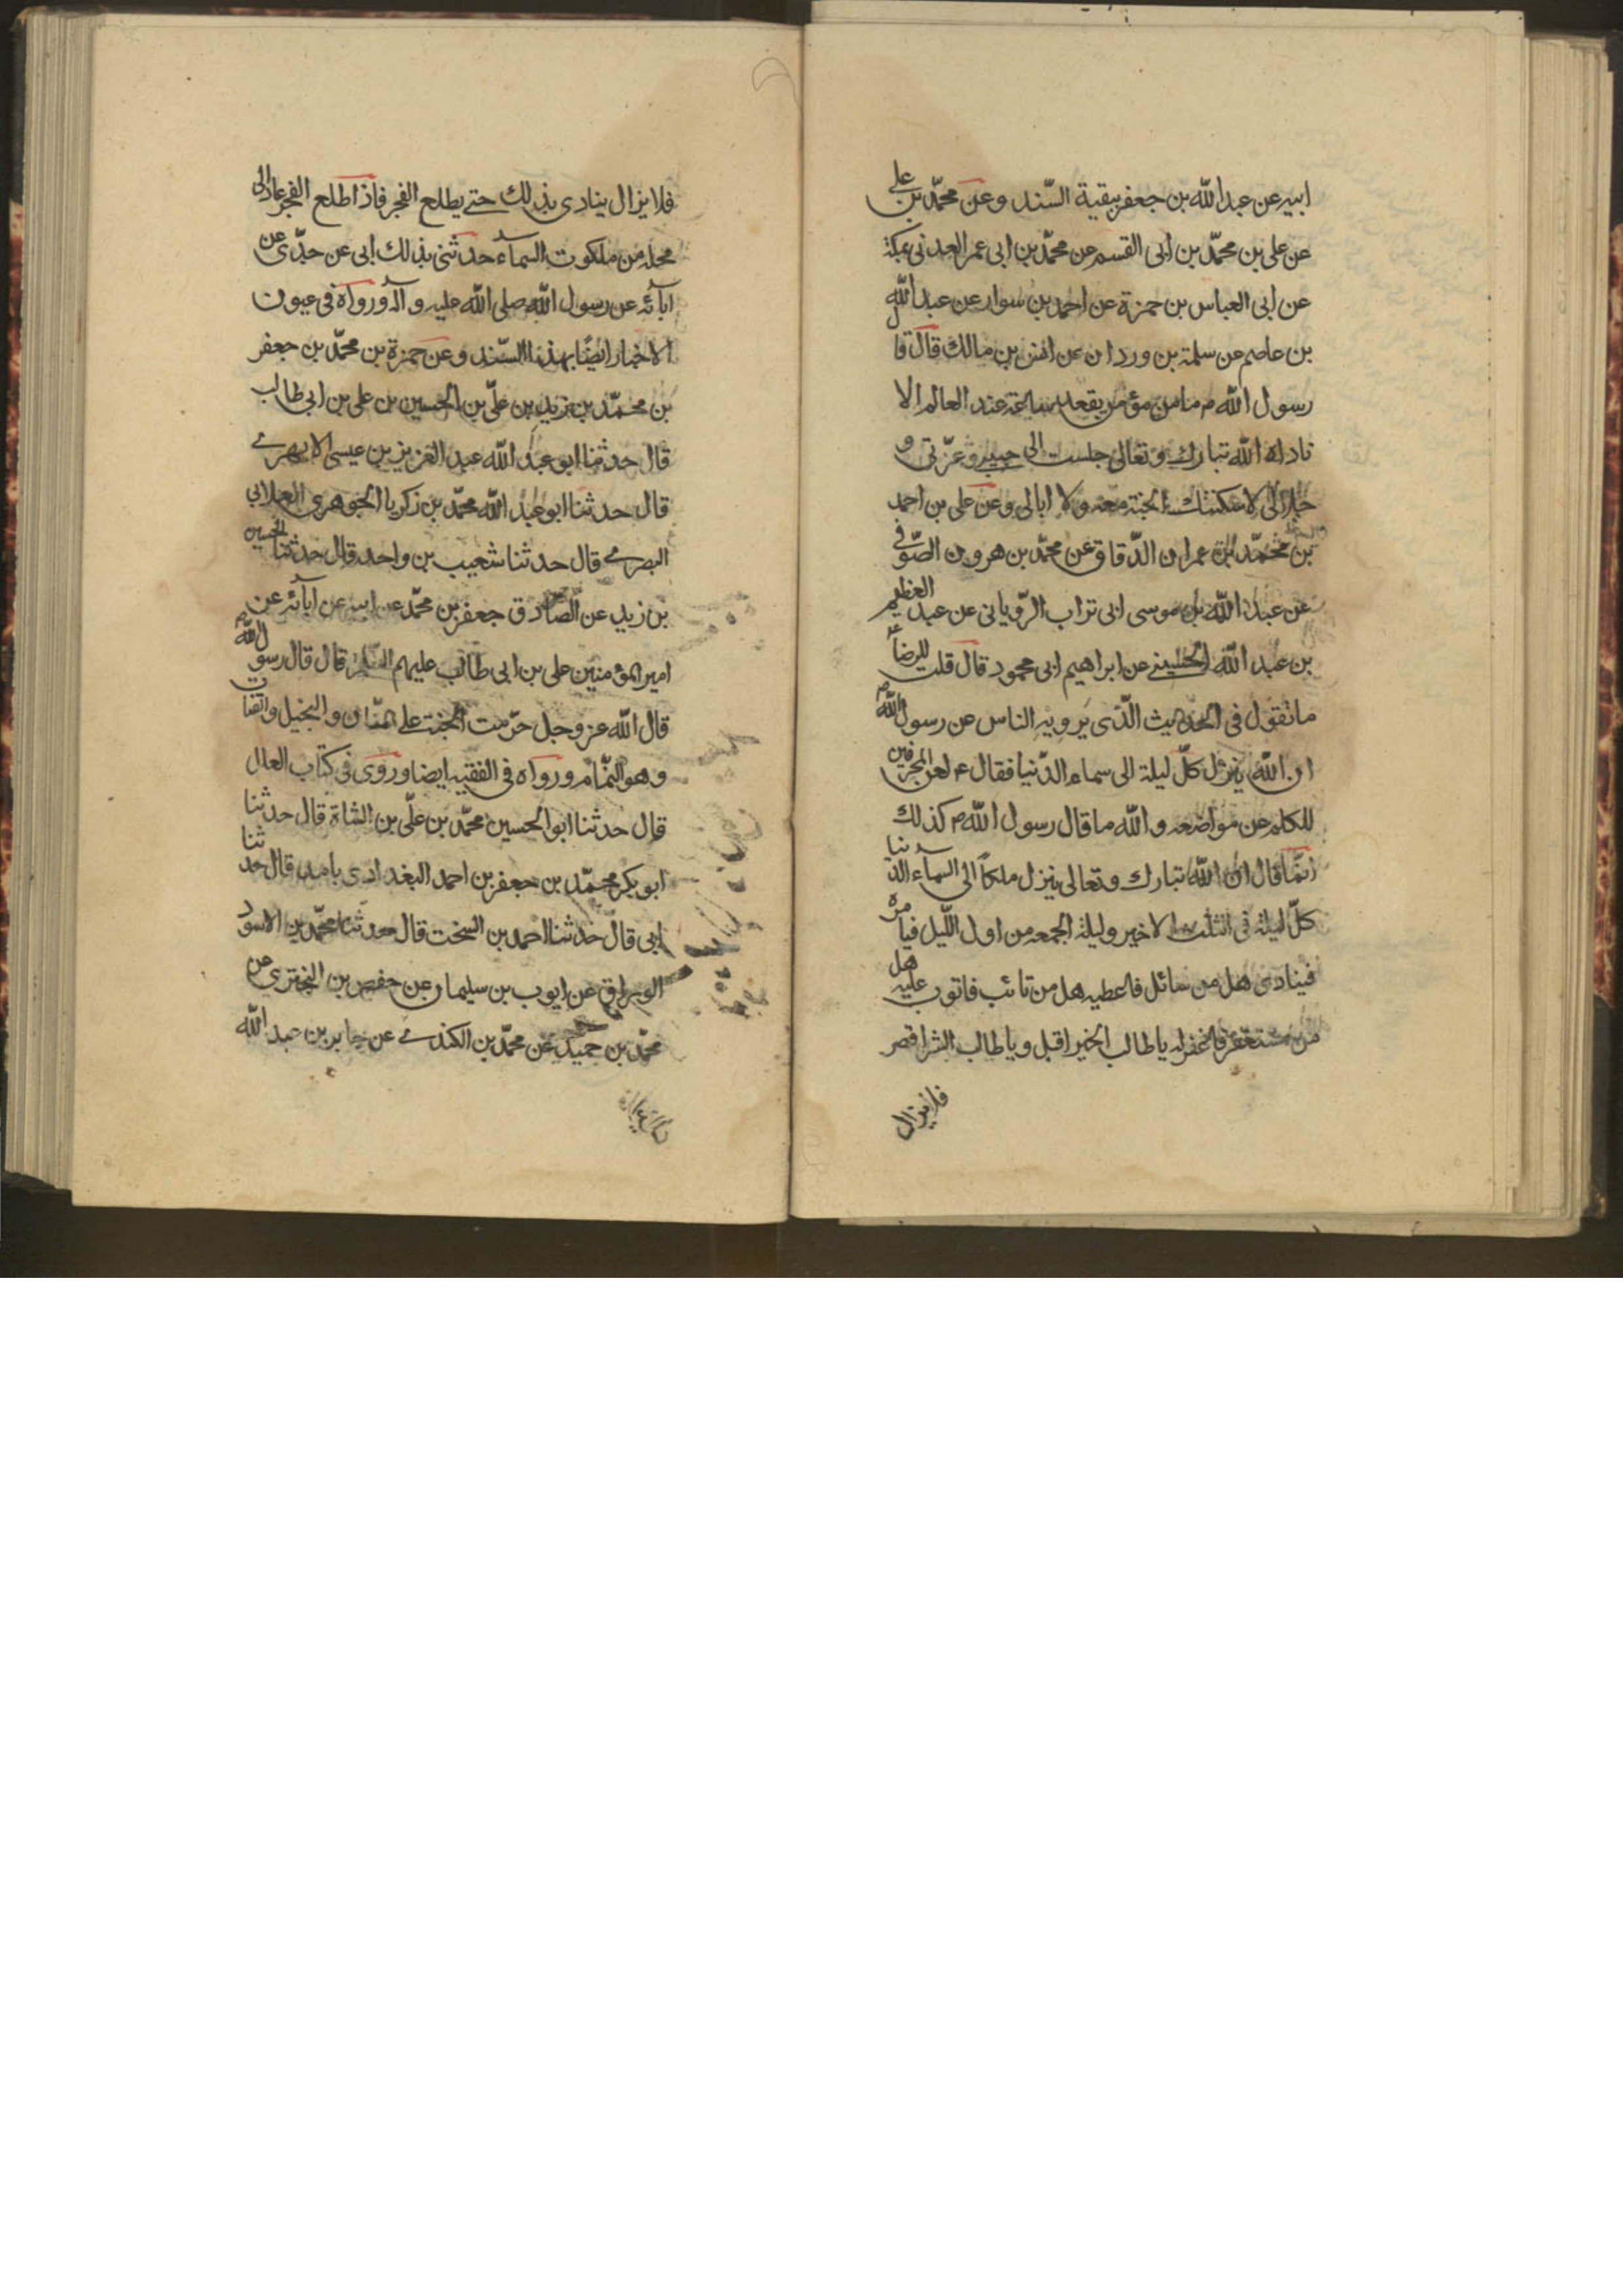 ابيه عن عبد الله بن جعفر ببقية السّند وعن محمّد بن على
عن على بن محمّد بن ابى القسم عن محمّد بن ابى عمر العدنى بمكة
عن ابى العباس بن حمزة عن احمد بن سوار عن عبد الله
بن عاصم عن سلمة بن وردان عن انس بن مالك قال قال
رسول الله ص ما من مؤمن يقعد ساعة عند العالم الا
ناداه الله تبارك وتعالى جلست الى حبيبى وعزّتى و
جلالى لاسكننك الجنة معه ولا ابالى وعن على بن احمد
بن محمّد بن عمران الدّقاق عن محمّد بن هرون الصّوفى
عن عبد الله بن موسى ابى تراب الرّويانى عن عبد العظيم
بن عبد الله الحسينى عن ابراهيم ابى محمود قال قلت للرضا ع
ما تقول فى الحديث الّذى يرويه الناس عن رسول الله ص
ان الله ينزل كلّ ليلة الى سماء الدّنيا فقال ع لعن المحرفين
للكلم عن مواضعه والله ما قال رسول الله ص كذلك
انمّا قال ان الله تبارك وتعالى ينزل ملكاً الى السماء الدنيا
كلّ ليلة فى الثلث الاخير وليلة الجمعه من اول اللّيل فيامره
فينادى هل من سائل فاعطيه هل من تائب فاتوب عليه هل
من مستغفر فاغفر له يا طالب الخير اقبل ويا طالب الشر اقصر
فلا يزال
فلا يزال ينادى بذلك حتى يطلع الفجر فاذا طلع الفجر عاد الى
محله من ملكوت السماء حدثنى بذلك ابى عن جدّى عن
آبآئه عن رسول الله صلى الله عليه وآله ورواه فى عيون
الاخبار ايضًا بهذا السّند وعن حمزة بن محمّد بن جعفر
بن محمّد بن زيد بن علىّ بن الحسين بن على بن ابى طالب
قال حدثنا ابو عبد الله عبد العزيز بن عيسى الابهرى
قال حدثنا ابو عبد الله محمّد بن زكريا الجوهرى الغلابى
البصرى قال حدثنا شعيب بن واحد قال حدثنا الحسين
بن زيد عن الصّادق جعفر بن محمّد عن ابيه عن ابآئه عن
امير المؤمنين على بن ابى طالب عليهم السلم قال قال رسول الله ص
قال الله عز وجل حرّمت الجنة على المنّان والبخيل والقتات
وهو النمّام ورواه فى الفقيه ايضا وروى فى كتاب العلل
قال حدثنا ابو الحسين محمّد بن علىّ بن الشاة قال حدثنا
ابو بكر محمّد بن جعفر بن احمد البغدادى بامد قال حدثنا
ابى قال حدثنا احمد بن السخت قال حدثنا محمّد بن الاسود
الوراق عن ايوب بن سليمان عن حفص بن البخترى عن
محمّد بن حميد عن محمّد بن الكندى عن جابر بن عبد الله